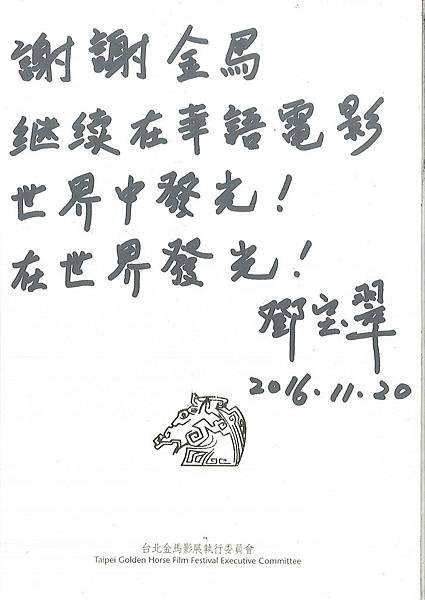 謝謝金馬
继续在華語電影
世界中發光！
在世界發光！
鄧宝翠
2016.11.20
台北金馬影展執行委員會
Taipei Golden Horse Film Festival Executive Committee